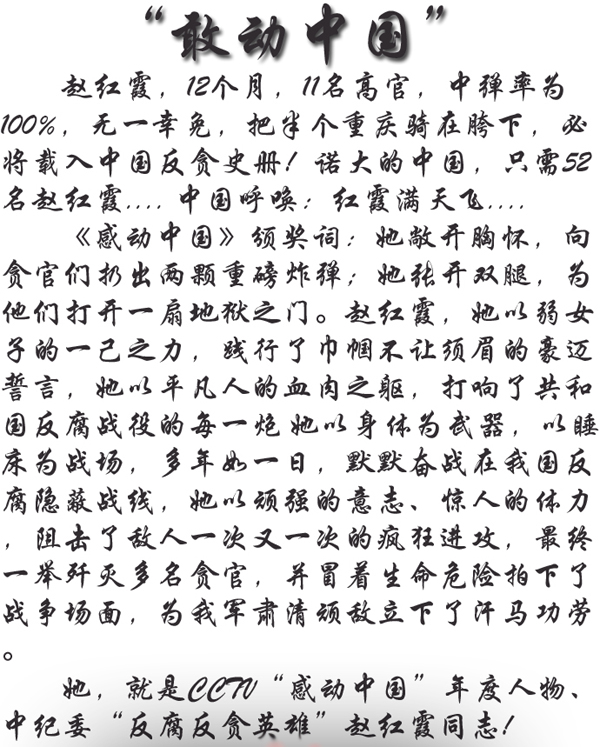 “敢动中国”
赵红霞，12个月，11名高官，中弹率为
100%，无一幸免，把半个重庆骑在胯下，必
将载入中国反贪史册！诺大的中国，只需52
名赵红霞....中国呼唤：红霞满天飞....
《感动中国》颁奖词：她敞开胸怀，向
贪官们扔出两颗重磅炸弹；她张开双腿，为
他们打开一扇地狱之门。赵红霞，她以弱女
子的一己之力，践行了巾帼不让须眉的豪迈
誓言，她以平凡人的血肉之躯，打响了共和
国反腐战役的每一炮她以身体为武器，以睡
床为战场，多年如一日，默默奋战在我国反
腐隐蔽战线，她以顽强的意志、惊人的体力
，阻击了敌人一次又一次的疯狂进攻，最终
一举歼灭多名贪官，并冒着生命危险拍下了
战争场面，为我军肃清顽敌立下了汗马功劳
。
她，就是CCTV“感动中国”年度人物、
中纪委“反腐反贪英雄”赵红霞同志！